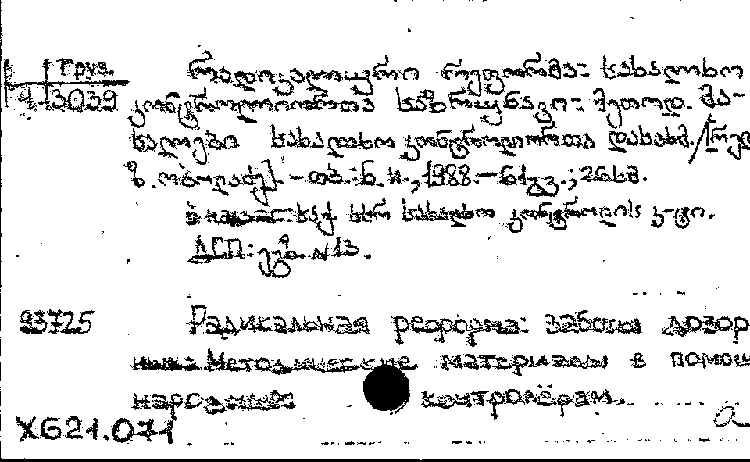 Груз.
4-3039
რადიკალური რეფორმა: სახალხო
კონტროლიორთა საზრუნავი: მეთოდ. მა-
სალები სახალხო კონტროლიორთა დასახმ./რედ
ზ. - თბ.: ბ. ი., 1988. - 61 გვ.; 26სმ.
საქ. სსრ სახალხო კონტროლის კ-ტი.
ДСП: ეგზ. №13.
93725 Радикальная реформа: заботы дозор
ных: Методические материалы в помощ
народным контролёрам.
X621.071
a